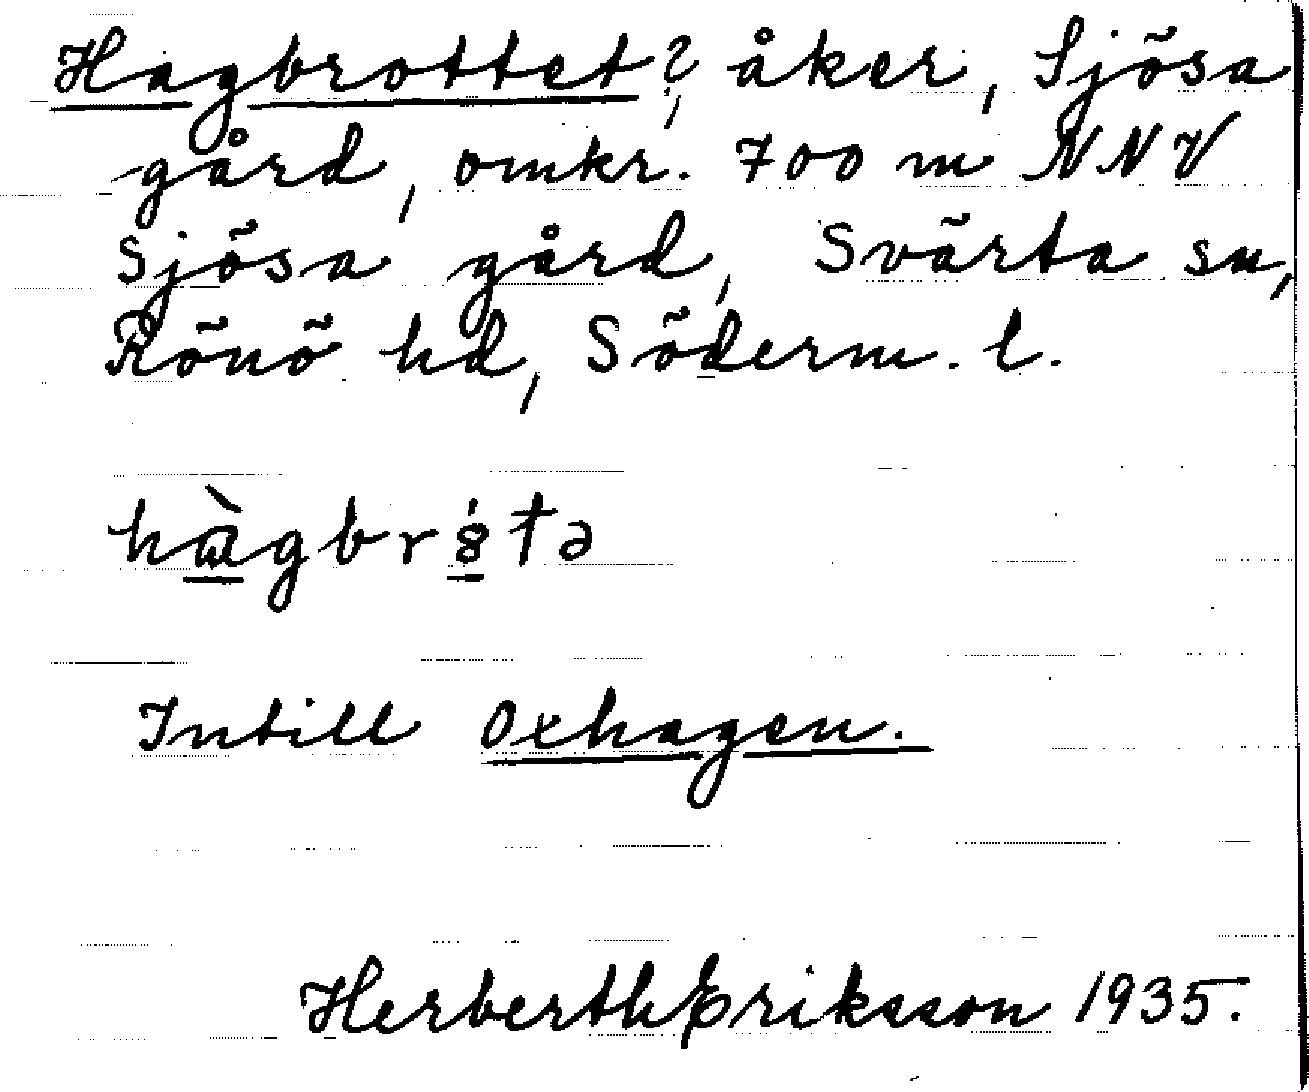 Hagbrottet?, åker, Sjösa
gård, omkr. 700 m NNV
Sjösa gård, Svärta sn,
Rönö hd, Söderm. l.
hàgbr8́tə
Intill Oxhagen.
Herbert Eriksson 1935.